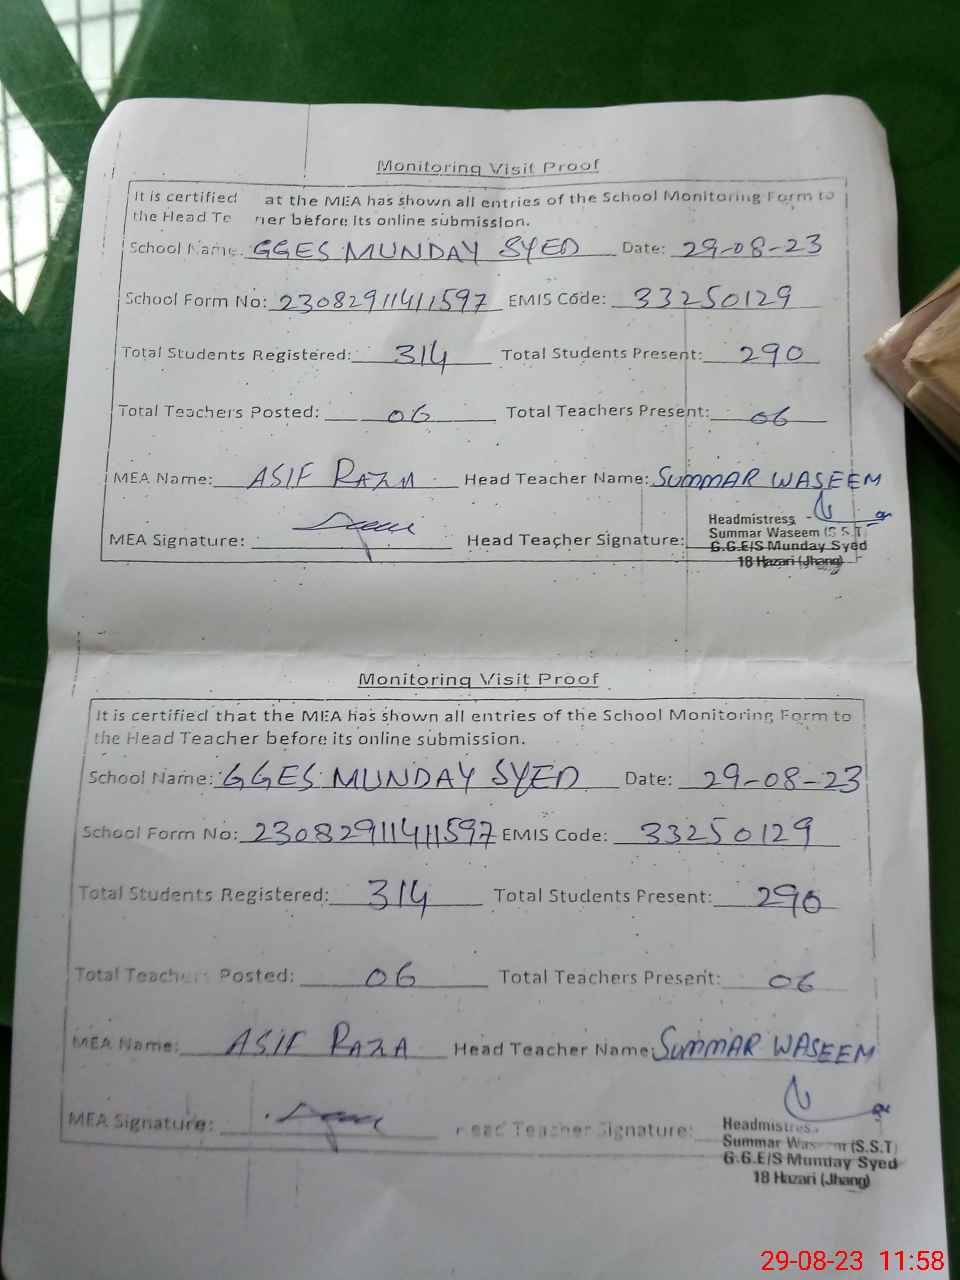 Monitoring Visit Proof
It is certified at the MEA has shown all entries of the School Monitoring Form to
the Head Te her before its online submission.
School Name: GGES MUNDAY SYED Date: 29-08-23
School Form No: 23082911411597 EMIS Code: 33250129
Total Students Registered: 314 Total Students Present: 290
Total Teachers Posted: 06 Total Teachers Present: 06
MEA Name: ASIF RAZA Head Teacher Name: SUMMAR WASEEM
MEA Signature: Head Teacher Signature:
Headmistress
Summar Waseem (S.S.T)
G.G.E/S Munday Syed
18 Hazari (Jhang)
Monitoring Visit Proof
It is certified that the MEA has shown all entries of the School Monitoring Form to
the Head Teacher before its online submission.
School Name: GGES MUNDAY SYED Date: 29-08-23
School Form No: 23082911411597 EMIS Code: 33250129
Total Students Registered: 314 Total Students Present: 290
Total Teachers Posted: 06 Total Teachers Present: 06
MEA Name: ASIF RAZA Head Teacher Name: SUMMAR WASEEM
MEA Signature: Head Teacher Signature:
Headmistress
Summar Waseem (S.S.T)
G.G.E/S Munday Syed
18 Hazari (Jhang)
29-08-23 11:58